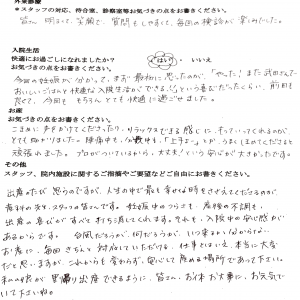 外来診療
＊スタッフの対応、待合室、診察室等お気づきの点をお書きください。
皆さん明るくて、笑顔で、質問もしやすくて、毎回の検診が楽しみでした。
入院生活
快適にお過ごしになれましたか？ はい いいえ
お気づきの点をお書きください。
今回の妊娠が分かって、まず最初に思ったのが、「やった！また武田さんで
おいしいごはんと快適な入院生活ができる」という喜びだったくらい、前回も
良くて、今回も もちろん とても快適に過ごせました。
お産
お気づきの点をお書きください。
こまめに声をかけてくださったり、リラックスできる感じに、もっていってくれるので、
とても助かりました。陣痛中も、分娩中も、「上手よ～」とか、うまくほめてくださると
頑張れました。プロがついているから、大丈夫！という安心が大きかったです。
その他
スタッフ、院内施設に関するご指摘やご要望などご自由にお書きください。
出産のたび思うのですが、人生の中で最も幸せな時をささえてくださるのが、
産科の先生、スタッフの皆さんです。妊娠中のつらさも、産後の不調も、
出産の喜びがすべて 消してくれます。それも、入院中の安心感が
あるからです。 台風だろうが、何だろうが、いつ来るか分からない
お産に、毎回きちんと対応していただける、仕事とはいえ、本当に大変
だと思いますが、これからも変わらず、安心して産める場所であって下さい。
私の4 が里帰り出産できるように、皆さん、お体お大事に、お元気で
いて下さいね。